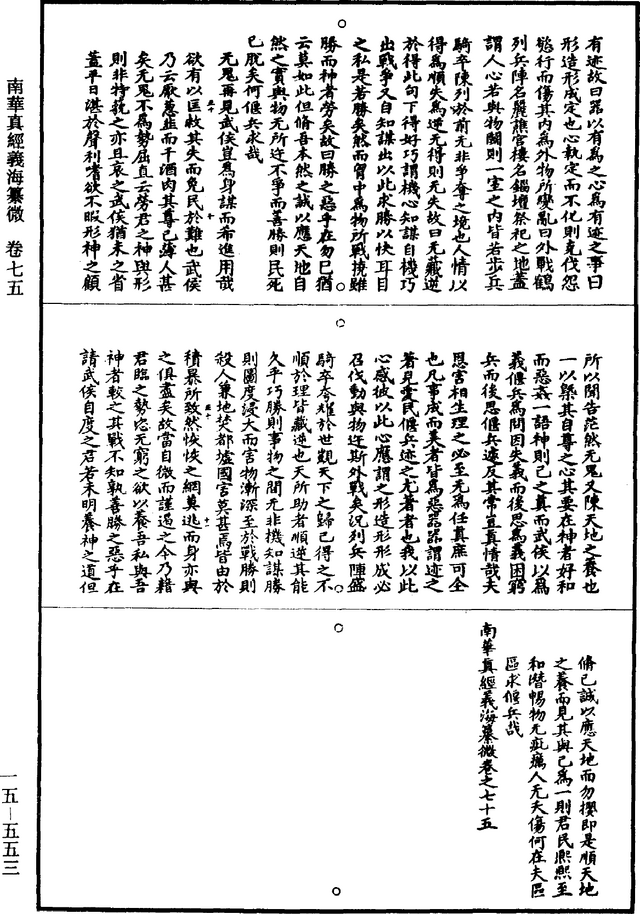 南華真經義海纂微 卷七五
一五—五五三
有迹故曰器以有為之心為有迹之事曰
形造形成定也心執定而不化則克伐怨
慾行而傷其内為外物所變亂曰外戰鶴
列兵陣名麗譙宫樓名錙壇祭祀之地蓋
謂人心若與物鬬則一室之内皆若步兵
騎卒陳列於前无非爭奪之境也人情以
得為順失為逆无得則无失故曰无藏逆
於得此句下得好巧謂機心知謀自機巧
出戰爭又自知謀出以此求勝以快耳目
之私是若勝矣然而胷中為物所戰撓雖
勝而神者勞矣故曰勝之惡乎在勿已猶
云莫如此但脩吾本然之誠以應天地自
然之實與物无所迕不爭而善勝則民死
已脫矣何偃兵求哉
无鬼再見武侯豈為身謀而希進用哉
欲有以匡救其失而免民於難也武侯
乃云厭葱韭而干酒肉其尊已薄人甚
矣无鬼不為勢屈直云勞君之神與形
則非特我之亦且哀之武侯猶未之省
蓋平日湛於聲利嗜欲不暇形神之顧
所以聞告茫然无鬼又陳天地之養也
一以槩其自尊之心其要在神者好和
而惡姦一語神則已之真而武侯以為
義偃兵為問因失義而後思為義困窮
兵而後思偃兵遽反其常豈真情哉夫
恩害相生理之必至无為任真庶可全
也凡事成而美者皆為惡器器謂迹之
著見愛民偃兵迹之尤著者也我以此
心感彼以此心應謂之形造形形成必
召伐動與物迕斯外戰矣況列兵陣盛
騎卒夸耀於世觀天下之歸已得之不
順於理皆藏逆也天所助者順逆其能
久乎巧勝則事物之間无非機知謀勝
則圖度浸大而害物漸深至於戰勝則
殺人兼地焚都墟國害莫甚焉皆由於
積暴所致然恢恢之網莫逃而身亦與
之俱盡矣故當自微而謹遏之今乃藉
君臨之勢恣无窮之欲以養吾私與吾
神者較之其戰不知孰善勝之惡乎在
請武侯自度之君若未明養神之道但
脩已誠以應天地而勿攖即是順天地
之養而見其與已為一則君民熙熙至
和暗暢物无疵癘人无夭傷何在夫區
區求偃兵哉
南華真經義海纂微卷之七十五